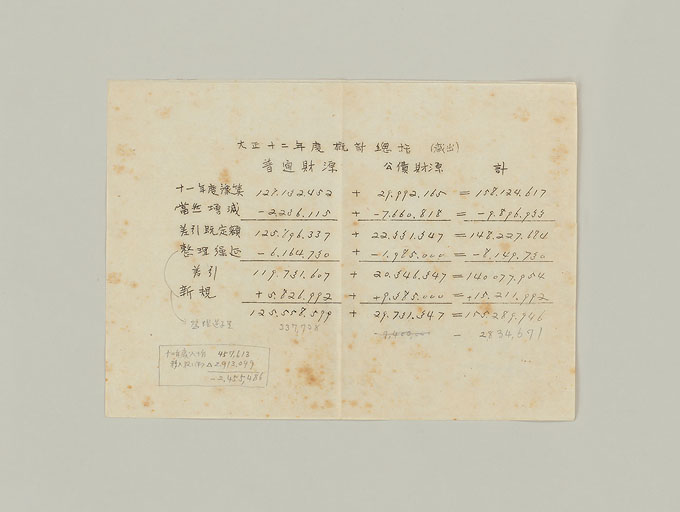 大正十二年度概計總括 (歳出)
普通財源 公債財源 計
十一年度豫算 128.132.452 + 29.992.165 = 158.124.617
當然增減 -2.236.115 + -7.660.818 = -9.896.933
差引既定額 125.896.337 + 22.331.347 = 148.227.684
整理繰延 -6.164.730 + -1.985.000 = -8.149.730
差引 119.731.607 + 20.346.347 = 140.077.954
新規 +5.826.992 + +9.385.000 = +15.211.992
125.558.599 + 29.731.347 = 155.289.946
337,738 - 2834,671
457,613
△2,913,099
-2,455,486